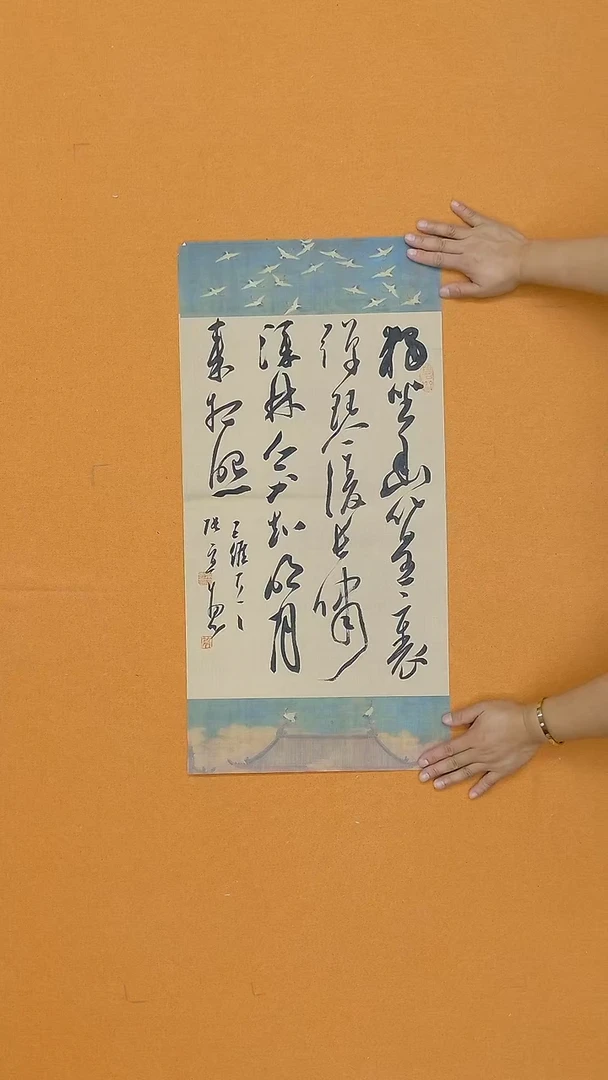 獨坐幽篁裏
彈琴復長嘯
深林人不知明月
來相照
王維